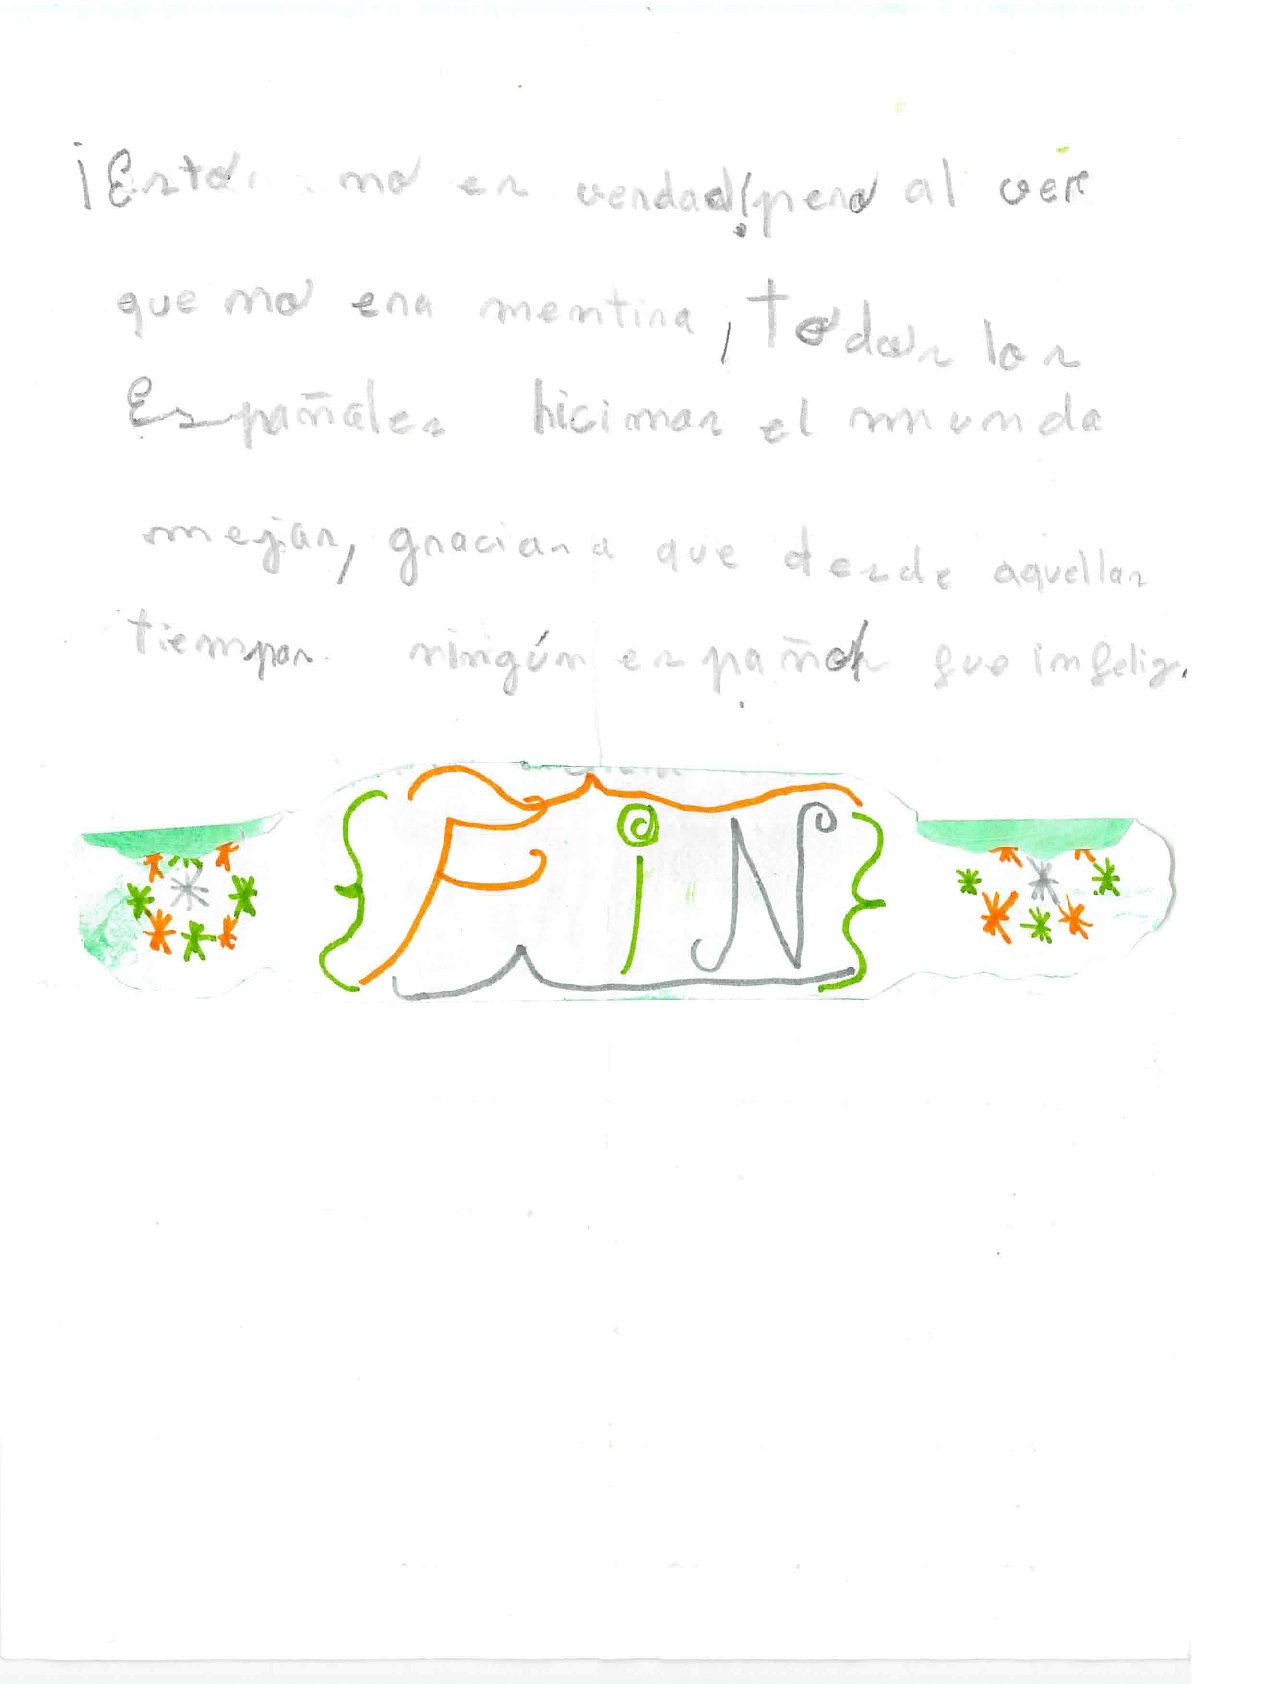 ¡Esto no es verdad! pero al ver
que no era mentira, todos los
Españoles hicimos el mundo
mejor, gracias a que desde aquellos
tiempos ningún español fue infeliz.
FiN